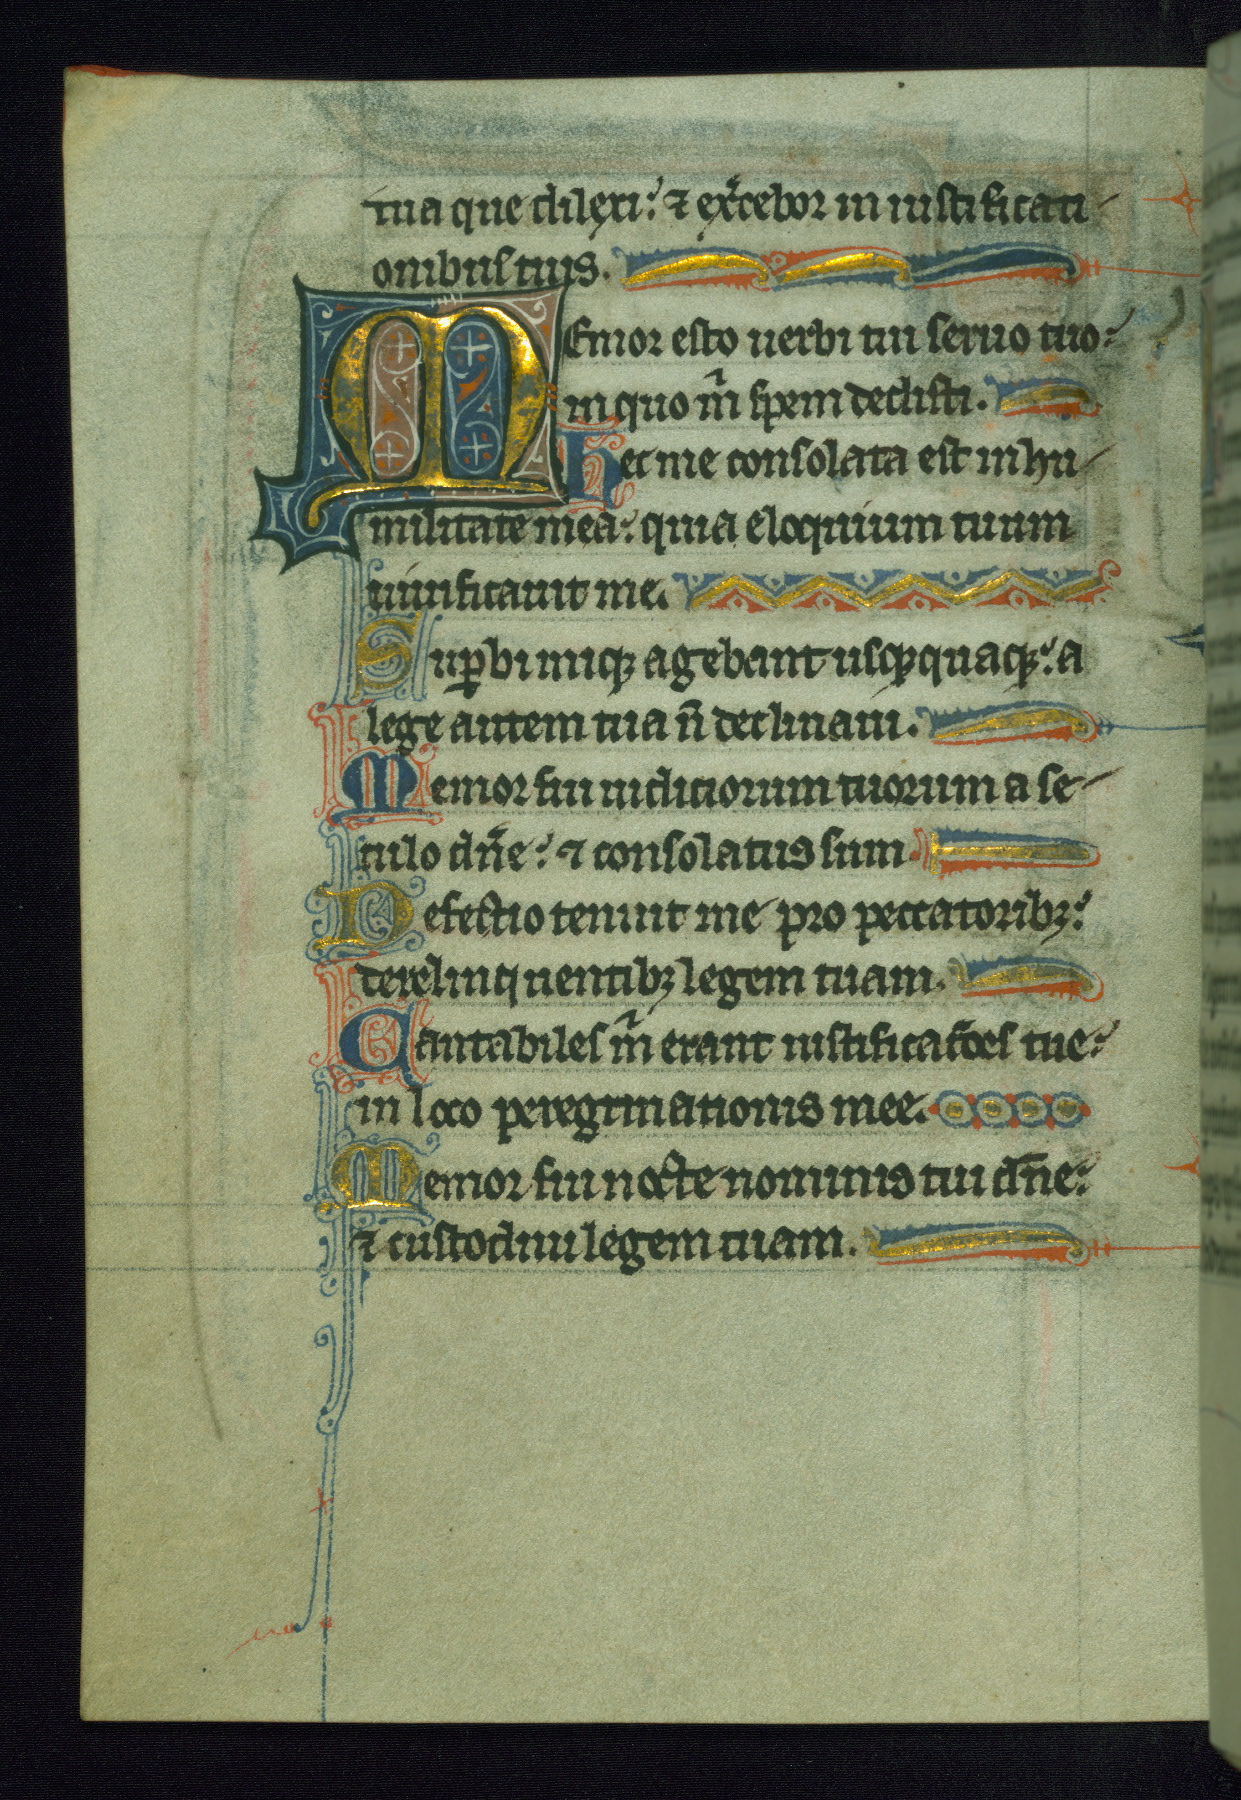 tua que dilexi: ⁊ ex̾cebor in iustificati
onibus tuis.
MEmor esto uerbi tui seruo tuo:
in quo m̄ spem dedisti.
hec me consolata est in hu
militate mea: quia eloquium tuum
uiuificauit me.
Suꝑbi iniqꝫ agebant usqꝫquaqꝫ: a
lege autem tua n̄ declinaui.
Memor fui iudiciorum tuorum a se
culo dn̄e: ⁊ consolatus sum.
Defectio tenuit me pro peccatoribꝫ:
derelinquentibꝫ legem tuam.
Cantabiles m̄ erant iustificac̄oes tue:
in loco peregrinationis mee.
Memor fui nocte nominis tui dn̄e:
⁊ custodiui legem tuam.